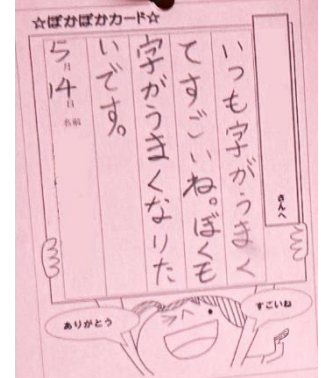 ☆ぽかぽかカード☆
さんへ
いつも字がうまく
てすごいね。ぼくも
字がうまくなりた
いです。
5月14日 名前
すごいね
ありがとう